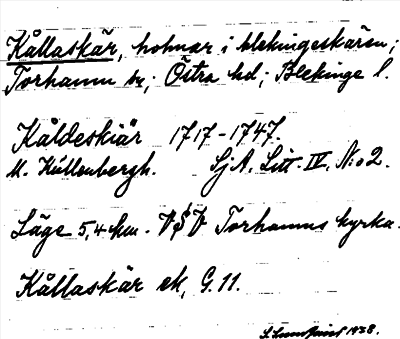 Kållaskär, holmar i blekingeskären;
Torhamn sn; Östra hd; Blekinge l.
Kåldeskiär 1717-1747.
M. Küllenbergh. SjA, Litt. IV, N:o 2.
Läge 5,4 km. VSV Torhamns kyrka.
Kållaskär ek, G. 11.
1938.